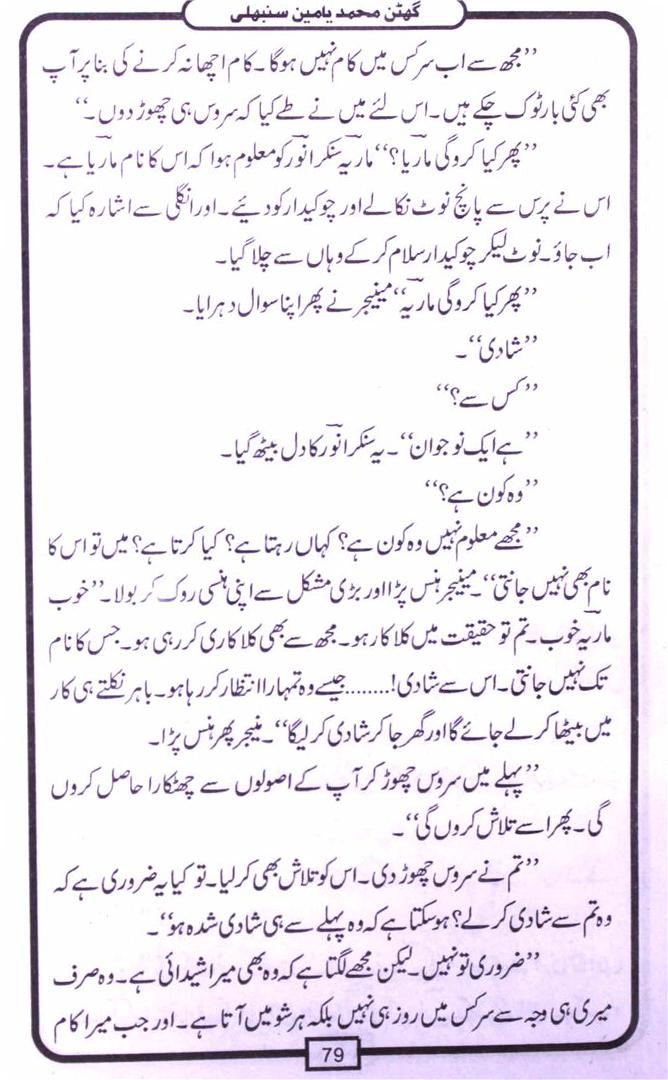 گھٹن محمد یامین سنبھلی
’’مجھ سے اب سرکس میں کام نہیں ہوگا۔ کام اچھا نہ کرنے کی بنا پر آپ
بھی کئی بار ٹوک چکے ہیں۔ اس لئے میں نے طے کیا کہ سروس ہی چھوڑ دوں۔‘‘
’’پھر کیا کروگی ماریا؟‘‘ ماریہ سنکر انور کو معلوم ہوا کہ اس کا نام ماریا ہے۔
اس نے پرس سے پانچ نوٹ نکالے اور چوکیدار کو دئیے۔ اور انگلی سے اشارہ کیا کہ
اب جاؤ۔ نوٹ لیکر چوکیدار سلام کر کے وہاں سے چلا گیا۔
’’پھر کیا کروگی ماریہ‘‘ مینیجر نے پھر اپنا سوال دہرایا۔
’’شادی‘‘۔
’’کس سے؟‘‘
’’ہے ایک نوجوان‘‘۔ یہ سنکر انور کا دل بیٹھ گیا۔
’’وہ کون ہے؟‘‘
’’مجھے معلوم نہیں وہ کون ہے؟ کہاں رہتا ہے؟ کیا کرتا ہے؟ میں تو اس کا
نام بھی نہیں جانتی‘‘۔ مینیجر ہنس پڑا اور بڑی مشکل سے اپنی ہنسی روک کر بولا۔ ’’خوب
ماریہ خوب۔ تم تو حقیقت میں کلاکار ہو۔ مجھ سے بھی کلاکاری کر رہی ہو۔ جس کا نام
تک نہیں جانتی۔ اس سے شادی!........ جیسے وہ تمہارا انتظار کر رہا ہو۔ باہر نکلتے ہی کار
میں بیٹھا کر لے جائے گا اور گھر جا کر شادی کر لیگا‘‘۔ منیجر پھر ہنس پڑا۔
’’پہلے میں سروس چھوڑ کر آپ کے اصولوں سے چھٹکارا حاصل کروں
گی۔ پھر اسے تلاش کروں گی‘‘۔
’’تم نے سروس چھوڑ دی۔ اس کو تلاش بھی کر لیا۔ تو کیا یہ ضروری ہے کہ
وہ تم سے شادی کر لے؟ ہو سکتا ہے کہ وہ پہلے سے ہی شادی شدہ ہو‘‘۔
’’ضروری تو نہیں۔ لیکن مجھے لگتا ہے کہ وہ بھی میرا شیدائی ہے۔ وہ صرف
میری ہی وجہ سے سرکس میں روز ہی نہیں بلکہ ہر شو میں آتا ہے۔ اور جب میرا کام
79